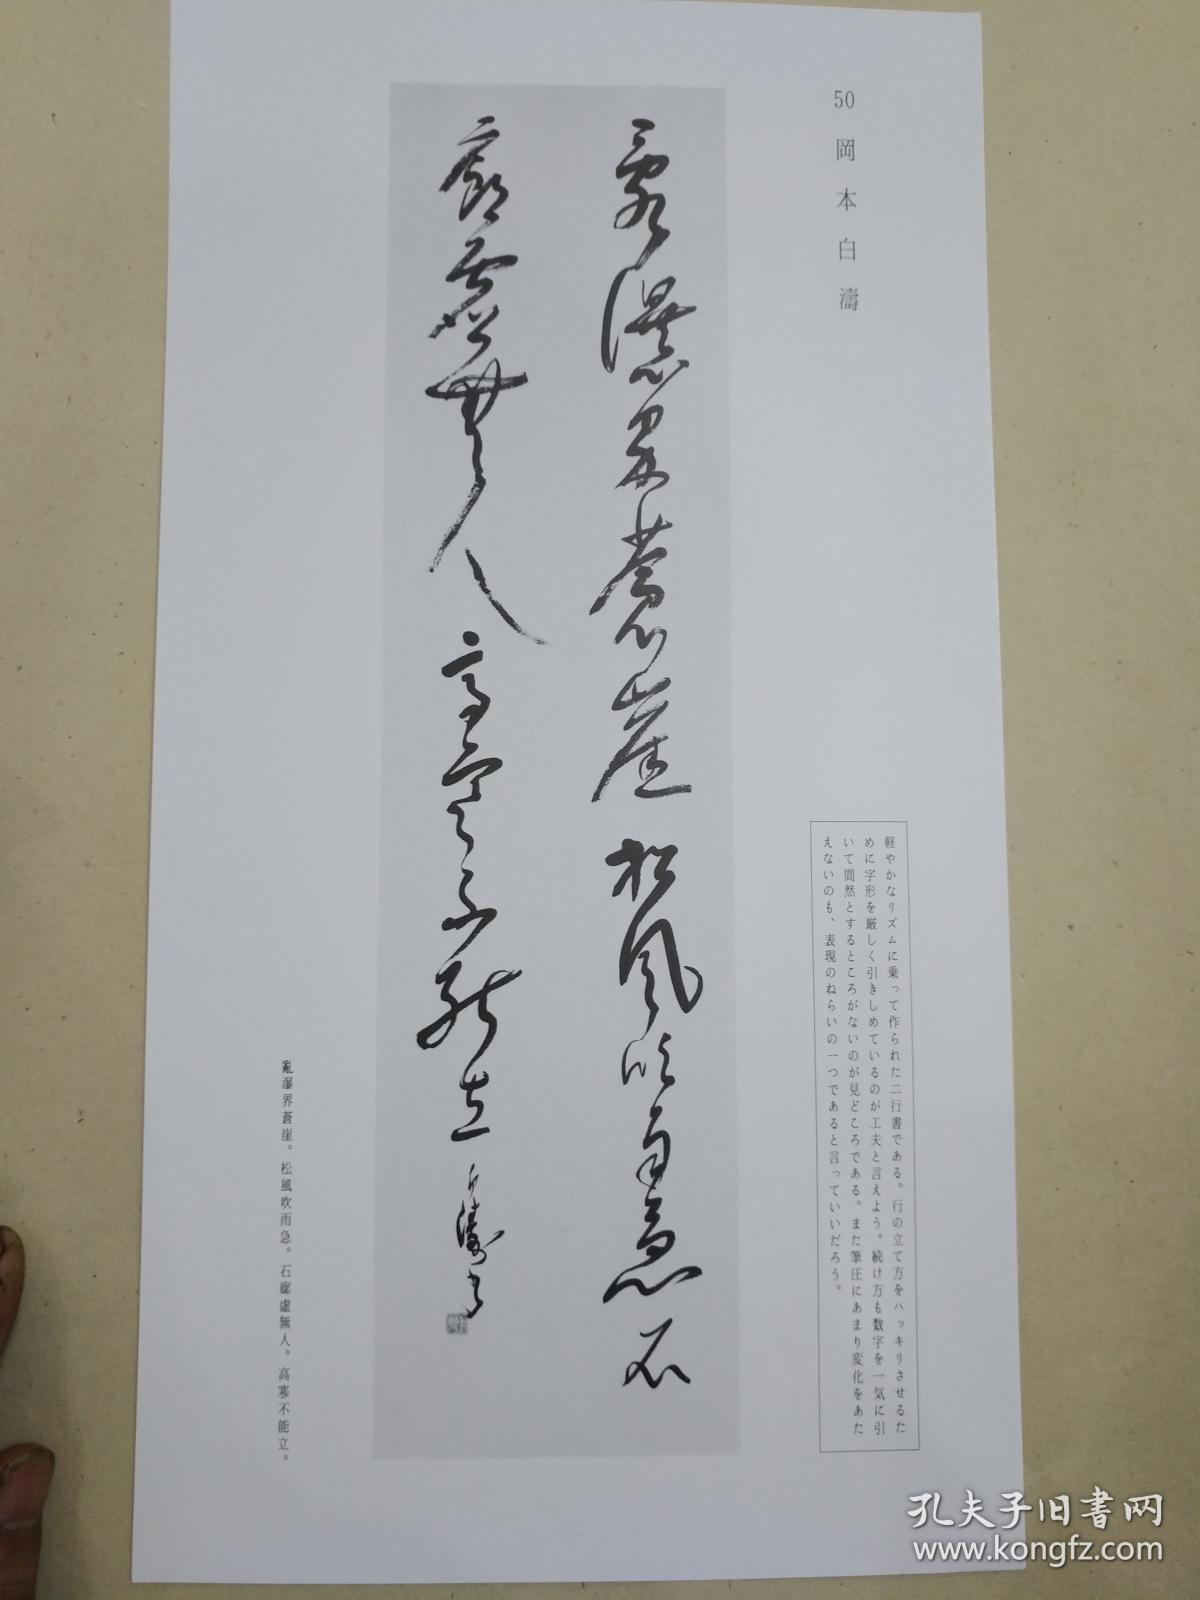 50 岡本白濤
亂瀑界蒼崖松風吹雨急石
廊虚無人高寒不能立 白濤書
軽やかなリズムに乗って作られた二行書である。行の立て方をハッキリさせるた
めに字形を厳しく引きしめているのが工夫と言えよう。続け方も数字を一気に引
いて間然とするところがないのが見どころである。また筆圧にあまり変化をあた
えないのも、表現のねらいの一つであると言っていいだろう。
亂瀑界蒼崖。松風吹雨急。石廊虚無人。高寒不能立。
孔夫子旧书网
www.kongfz.com